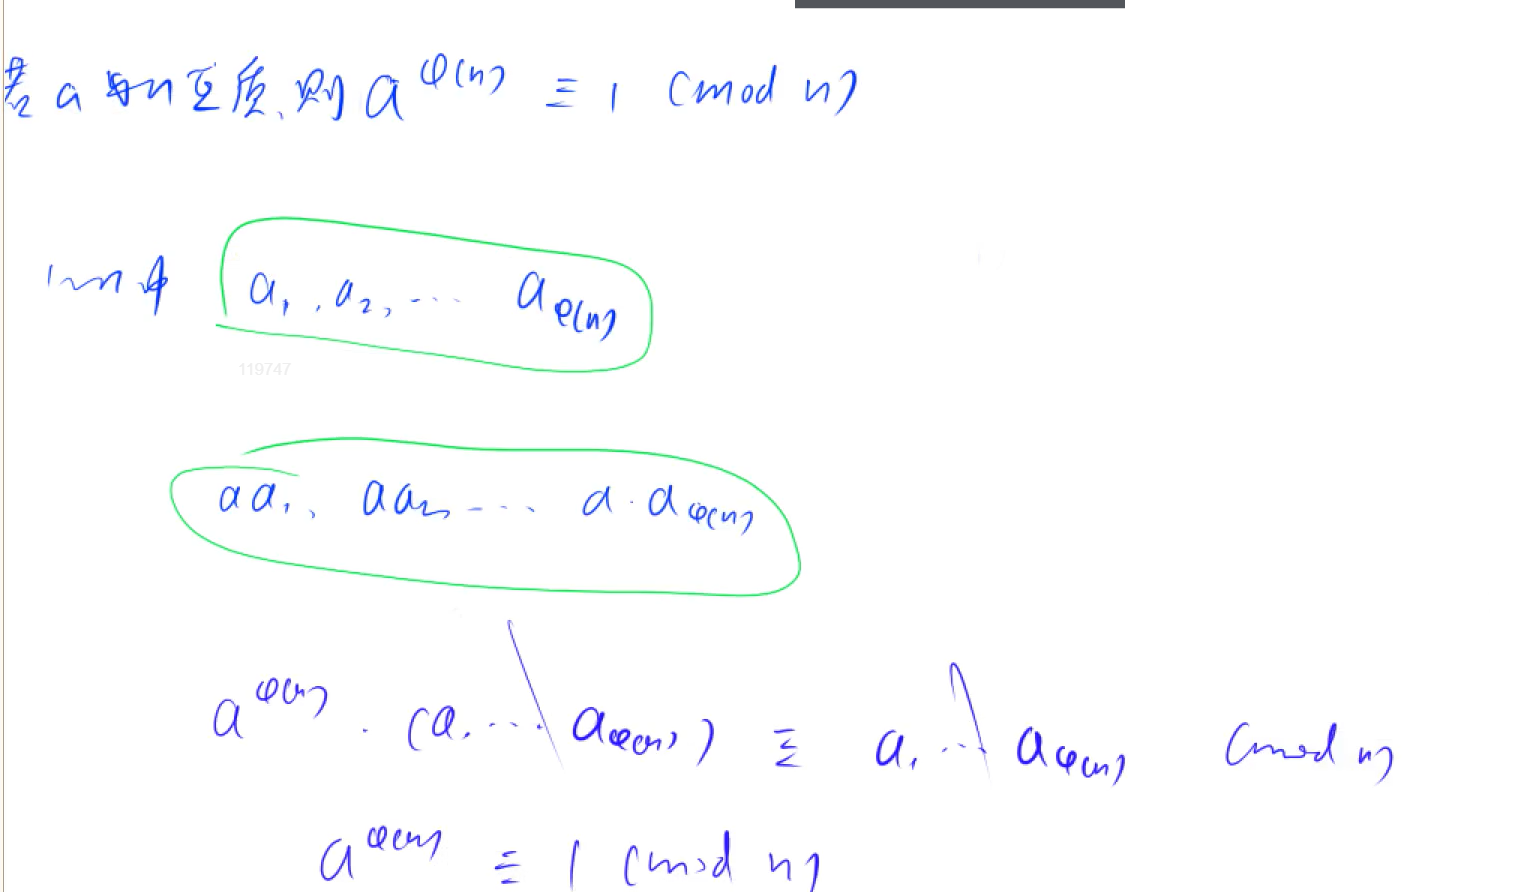 若 a 与 n 互质、则 a^φ(n) ≡ 1 (mod n)
1~n 中 a₁, a₂, ... a_φ(n)
119747
aa₁, aa₂, ... a·a_φ(n)
a^φ(n) · (a₁ ... a_φ(n)) ≡ a₁ ... a_φ(n) (mod n)
a^φ(n) ≡ 1 (mod n)